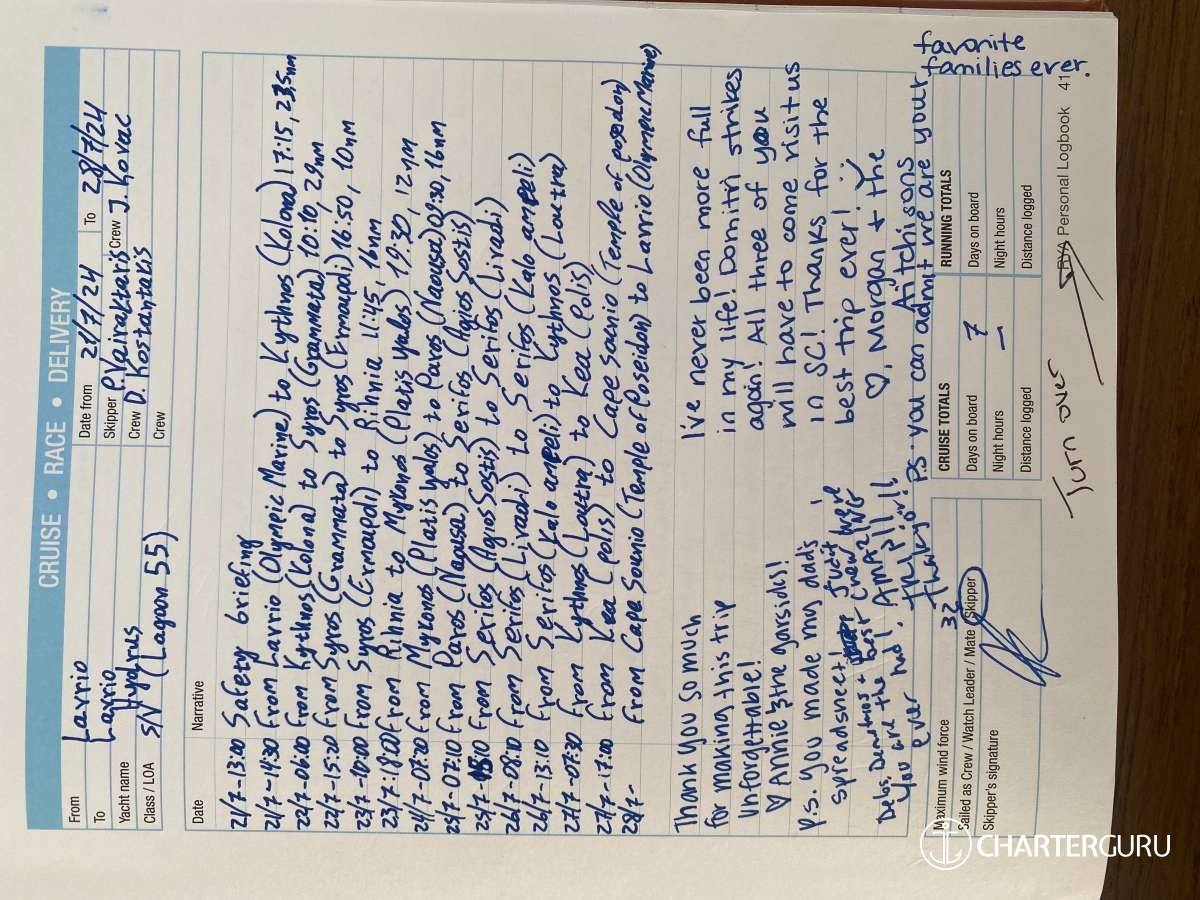 CRUISE • RACE • DELIVERY
From Lavrio
Date from 21/7/24 To 28/7/24
To Lavrio
Skipper P. Vairaktaris Crew J. Kovac
Yacht name Hydrus
Crew D. Kostantakis
Class / LOA S/V (Lagoon 55)
Crew
Date Narrative
21/7-13:00 Safety briefing
21/7-14:30 From Lavrio (Olympic Marine) to Kythnos (Kolona) 17:15, 23,5nm
22/7-06:00 From Kythnos (Kolona) to Syros (Grammata) 10:10, 29nm
22/7-15:20 From Syros (Grammata) to Syros (Ermoupoli) 16:50, 10nm
23/7-10:00 From Syros (Ermoupoli) to Rihnia 11:45, 16nm
23/7-18:00 From Rihnia to Mykonos (Platis yalos) 19:30, 12nm
24/7-07:20 From Mykonos (Platis yalos) to Paros (Naousa) 09:50, 16nm
25/7-07:10 From Paros (Naousa) to Serifos (Agios Sostis)
25/7-15:10 From Serifos (Agios Sostis) to Serifos (Livadi)
26/7-08:10 From Serifos (Livadi) to Serifos (Kalo ampeli)
26/7-13:10 From Serifos (Kalo ampeli) to Kythnos (Loutra)
27/7-07:30 From Kythnos (Loutra) to Kea (Polis)
27/7-17:00 From Kea (polis) to Cape Sounio (Temple of posedon)
28/7- From Cape Sounio (Temple of Poseidon) to Lavrio (Olympic Marine)
Thank you so much
for making this trip
unforgettable!
♡ Annie & the garsids!!
p.s. you made my dad's
spreadsheet!
Debs, Demetrios + Just know were
you are the best crew we've
ever had! AMAZING
TRIP!!!
Thankyou!!
I've never been more full
in my life! Domitri strikes
again! All three of you
will have to come visit us
in SC! Thanks for the
best trip ever! :)
♡, Morgan + the
Aitchisons
P.S. you can admit we are your
favorite
families ever.
Maximum wind force 32
Sailed as Crew / Watch Leader / Mate / Skipper
Skipper's signature
CRUISE TOTALS
Days on board 7
Night hours —
Distance logged
RUNNING TOTALS
Days on board
Night hours
Distance logged
Turn over
RYA Personal Logbook 41
CHARTERGURU